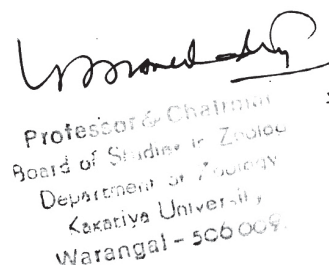 Professor & Chairman
Board of Studies in Zoology
Department of Zoology
Kakatiya University,
Warangal - 506 009.